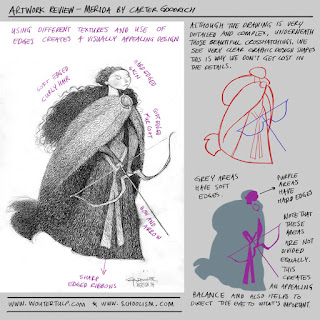 ARTWORK REVIEW - MERIDA BY CARTER GOODRICH
USING DIFFERENT TEXTURES AND USE OF
EDGES CREATES A VISUALLY APPEALING DESIGN
SOFT EDGED
CURLY HAIR
HARD EDGED
SKIN
SOFT EDGED
FUR COAT
BOW AND
ARROW
SHARP
EDGED RIBBONS
WWW.WOUTERTULP.COM & WWW.SCHOOLISM.COM
ALTHOUGH THE DRAWING IS VERY
DETAILED AND COMPLEX, UNDERNEATH
THOSE BEAUTIFUL CROSSHATCHING, WE
SEE VERY CLEAR GRAPHIC DESIGN SHAPES
THIS IS WHY WE DON'T GET LOST IN
THE DETAILS.
GREY AREAS
HAVE SOFT
EDGES.
PURPLE
AREAS
HAVE
HARD EDGES
NOTE THAT
THESE
AREAS
ARE NOT
DIVIDED
EQUALLY.
THIS
CREATES
AN APPEALING
BALANCE AND ALSO HELPS TO
DIRECT THE EYE TO WHAT'S IMPORTANT.